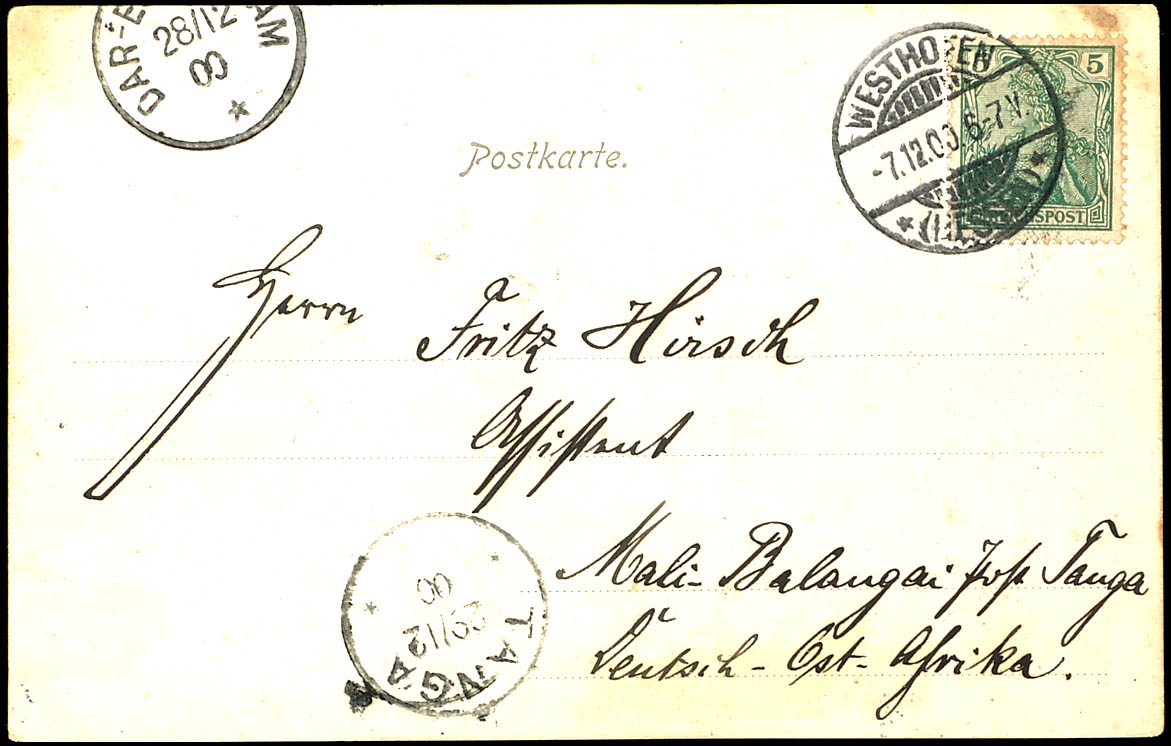 DAR-E AM
28/12
00
WESTHOFEN
-7.12.00 6-7 V.
5
Postkarte.
Herrn Fritz Hirsch
Assistent
Mali-Balangai Post Tanga
Deutsch-Ost-Afrika.
TANGA
29/12
00